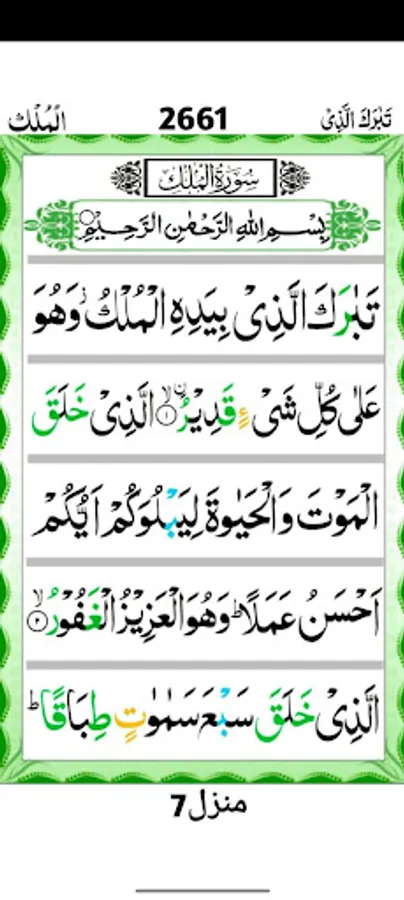 تَبٰرَكَ الَّذِیْ 2661 الْمُلْك
سُوْرَةُ الْمُلْكِ
بِسْمِ اللهِ الرَّحْمٰنِ الرَّحِیْمِ
تَبٰرَكَ الَّذِیْ بِیَدِهِ الْمُلْكُ ۫ وَهُوَ
عَلٰی كُلِّ شَیْءٍ قَدِیْرُۨ ۙ﴿۱﴾ الَّذِیْ خَلَقَ
الْمَوْتَ وَالْحَیٰوةَ لِیَبْلُوَكُمْ اَیُّكُمْ
اَحْسَنُ عَمَلًا ؕ وَهُوَ الْعَزِیْزُ الْغَفُوْرُ ۙ﴿۲﴾
الَّذِیْ خَلَقَ سَبْعَ سَمٰوٰتٍ طِبَاقًا ؕ
منزل 7